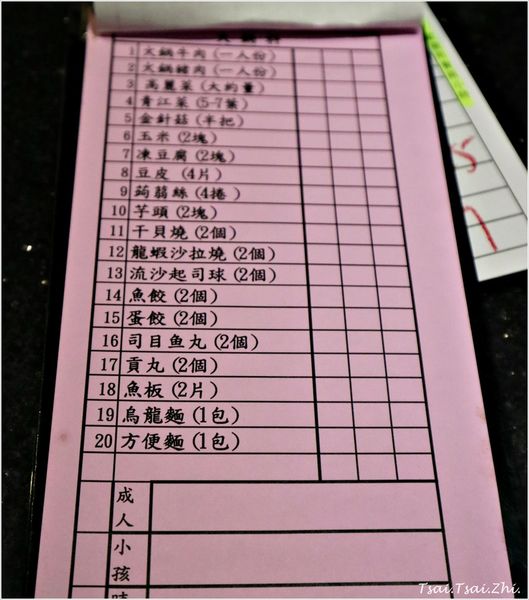 1 火鍋牛肉(一人份)
2 火鍋豬肉(一人份)
3 高麗菜(大約量)
4 青江菜(5-7葉)
5 金針菇(半把)
6 玉米(2塊)
7 凍豆腐(2塊)
8 豆皮 (4片)
9 蒟蒻絲(4捲 )
10 芋頭(2塊)
11 干貝燒(2個)
12 龍蝦沙拉燒(2個)
13 流沙起司球(2個)
14 魚餃(2個)
15 蛋餃(2個)
16 司目鱼丸(2個)
17 貢丸(2個)
18 魚板(2片)
19 烏龍麵(1包)
20 方便麵(1包)
成人
小孩
Tsai.Tsai.Zhi.